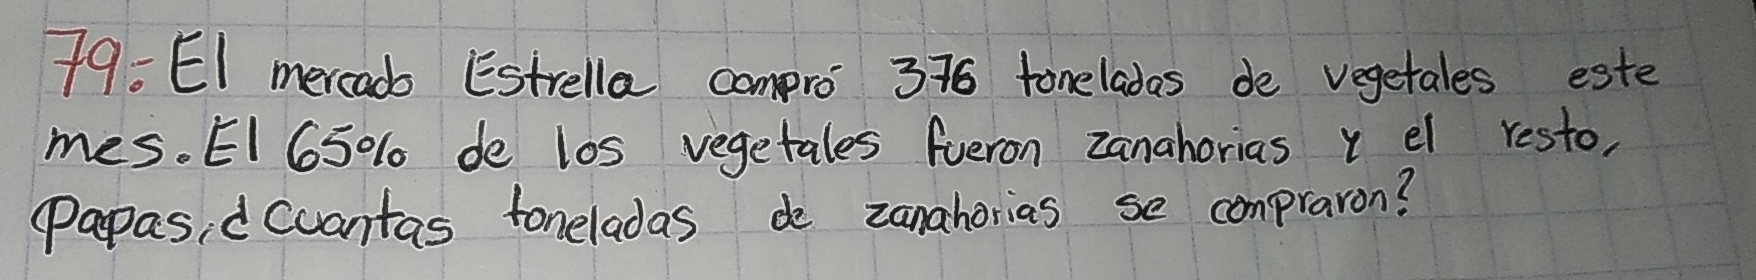 79: El mercado Estrella compró 376 toneladas de vegetales este
mes. El 65% de los vegetales fueron zanahorias y el resto,
papas, ¿Cuantas toneladas de zanahorias se compraron?